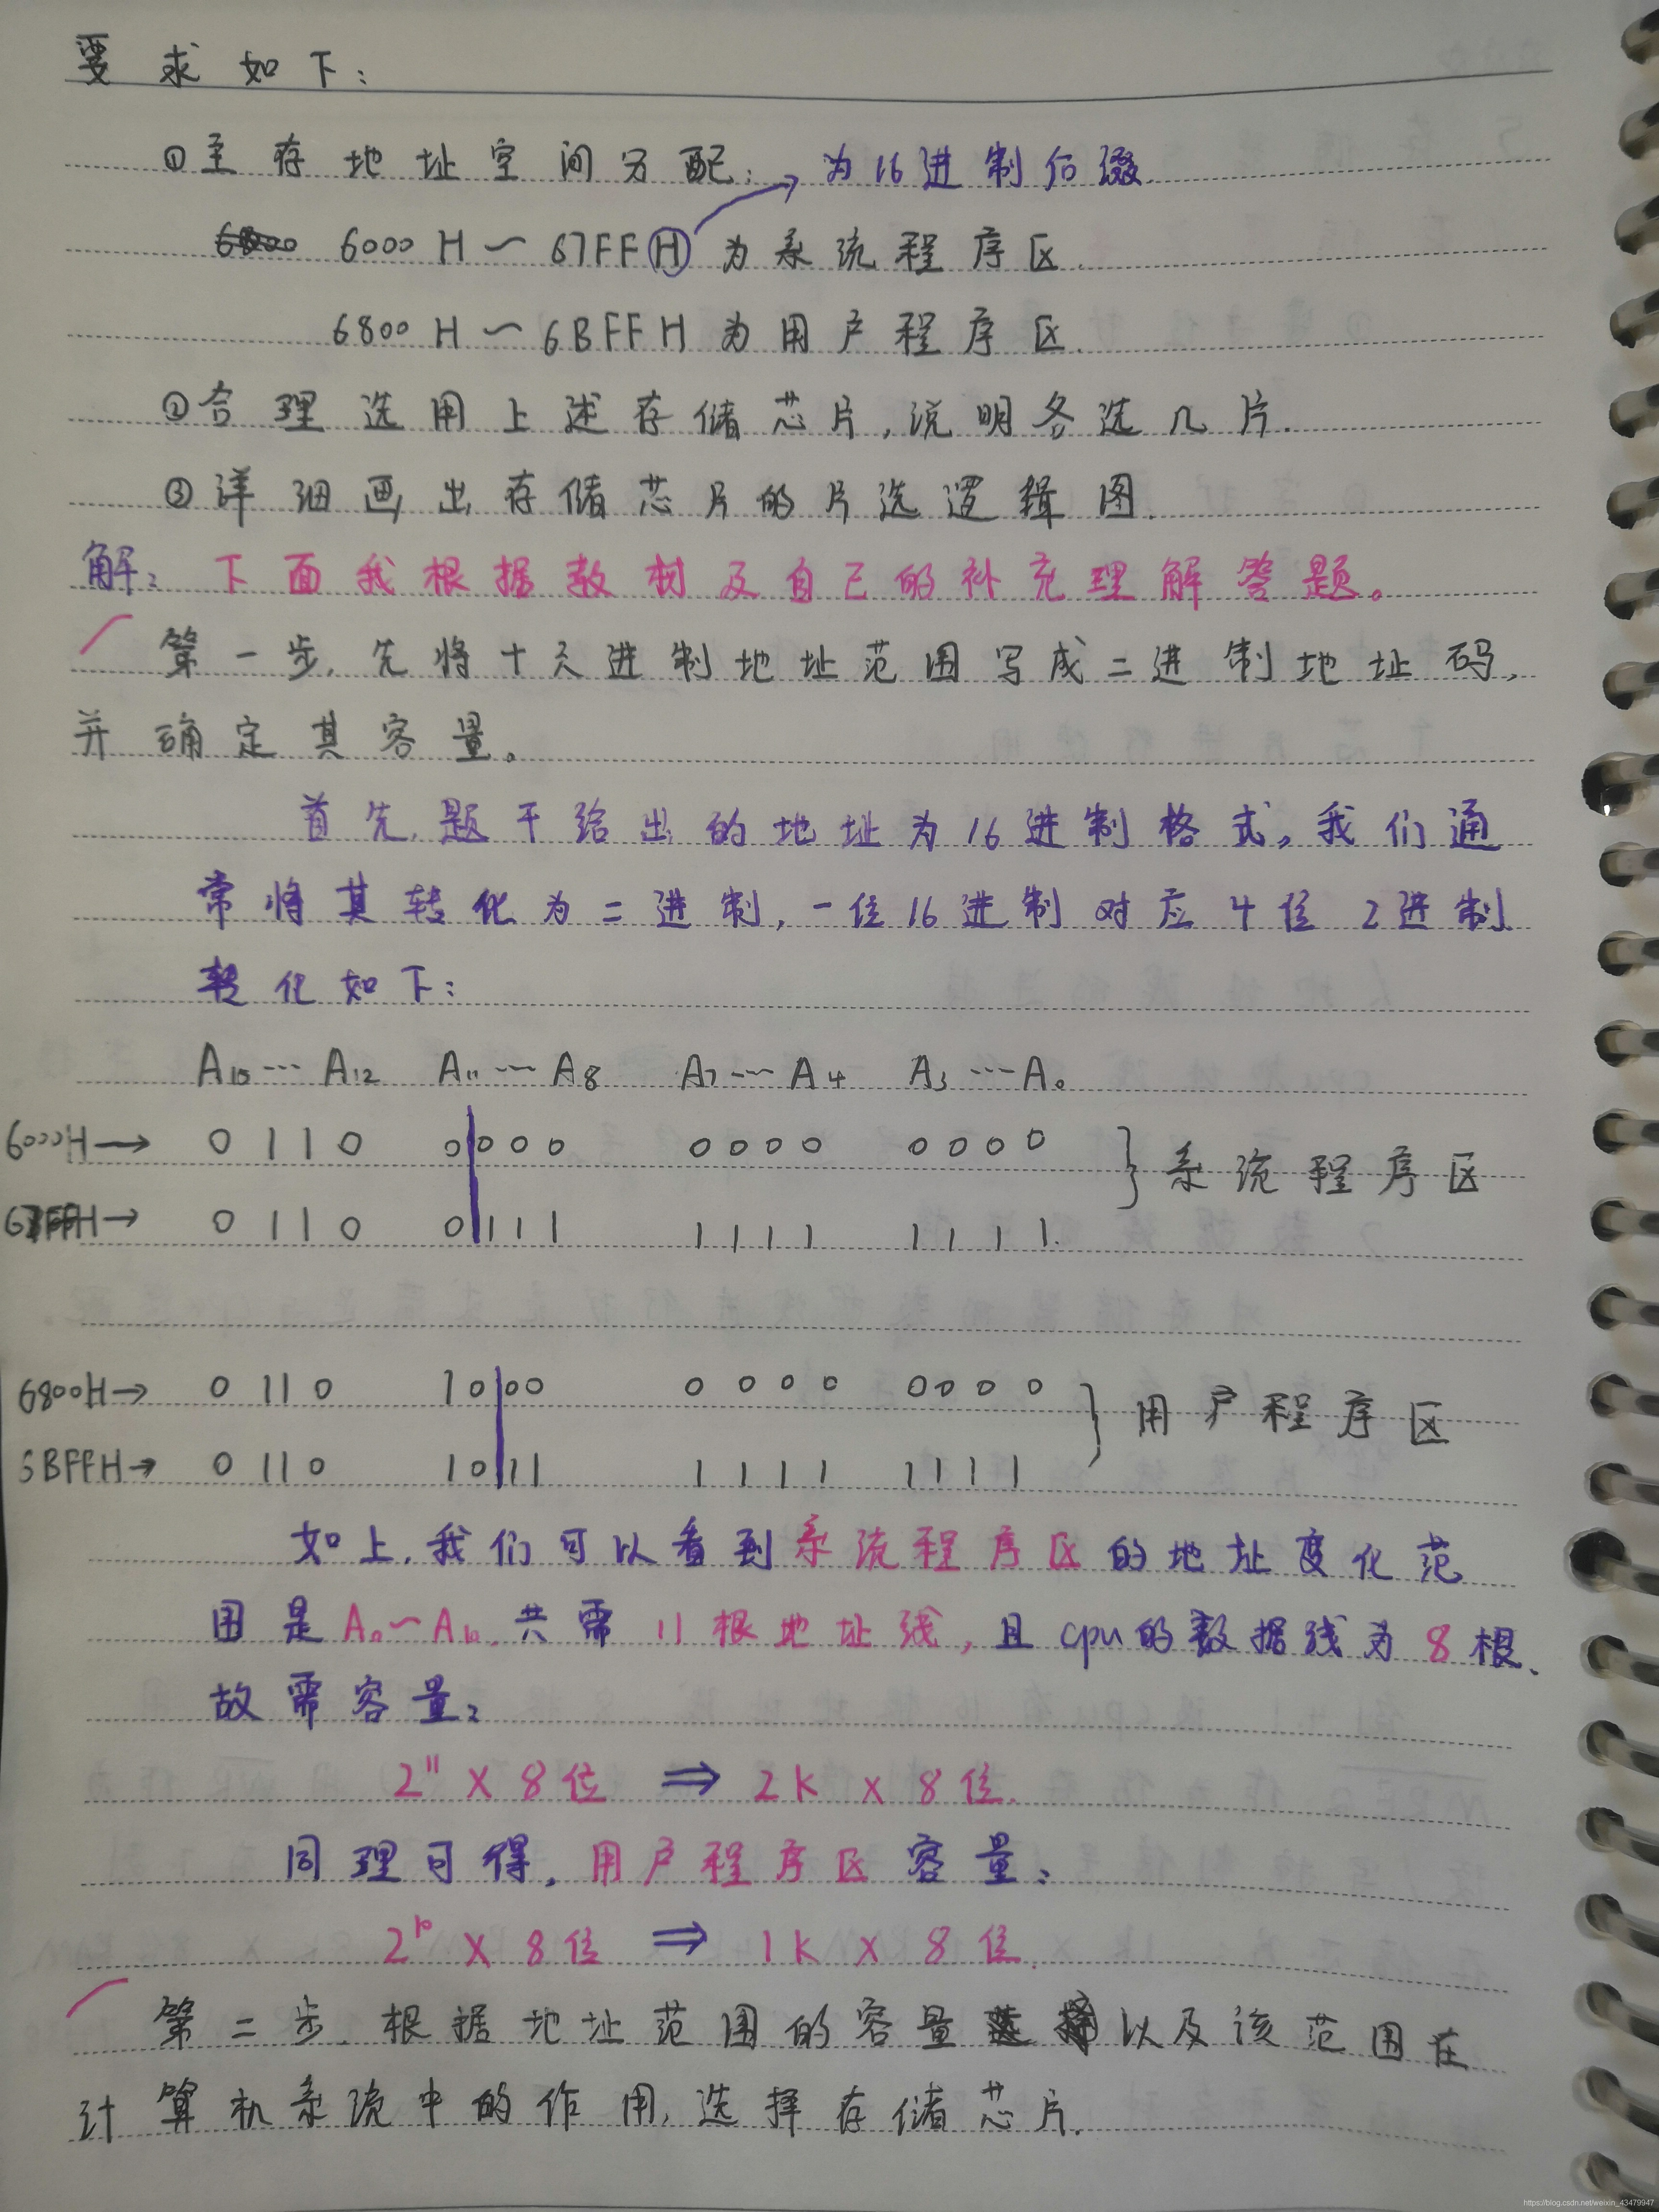 要求如下:
①主存地址空间分配: 为16进制后缀
6000H～67FFH为系统程序区.
6800H～6BFFH为用户程序区.
②合理选用上述存储芯片,说明各选几片.
③详细画出存储芯片的片选逻辑图.
解: 下面我根据教材及自己的补充理解答题。
第一步,先将十六进制地址范围写成二进制地址码,
并确定其容量。
首先,题干给出的地址为16进制格式,我们通
常将其转化为二进制,一位16进制对应4位2进制
转化如下:
A15…A12 A11…A8 A7…A4 A3…A0
6000H→ 0110 0000 0000 0000 }系统程序区
67FFH→ 0110 0111 1111 1111
6800H→ 0110 1000 0000 0000 }用户程序区
6BFFH→ 0110 1011 1111 1111
如上,我们可以看到系统程序区的地址变化范
围是A0～A10,共需11根地址线,且cpu的数据线为8根、
故需容量:
2¹¹×8位 ⇒ 2K×8位.
同理可得,用户程序区容量:
2¹⁰×8位 ⇒ 1K×8位.
第二步.根据地址范围的容量以及该范围在
计算机系统中的作用,选择存储芯片.
https://blog.csdn.net/weixin_43479947